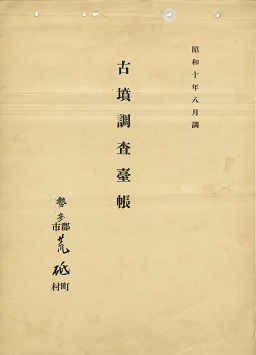 昭和十年八月調
古墳調査臺帳
勢多郡市荒砥町村